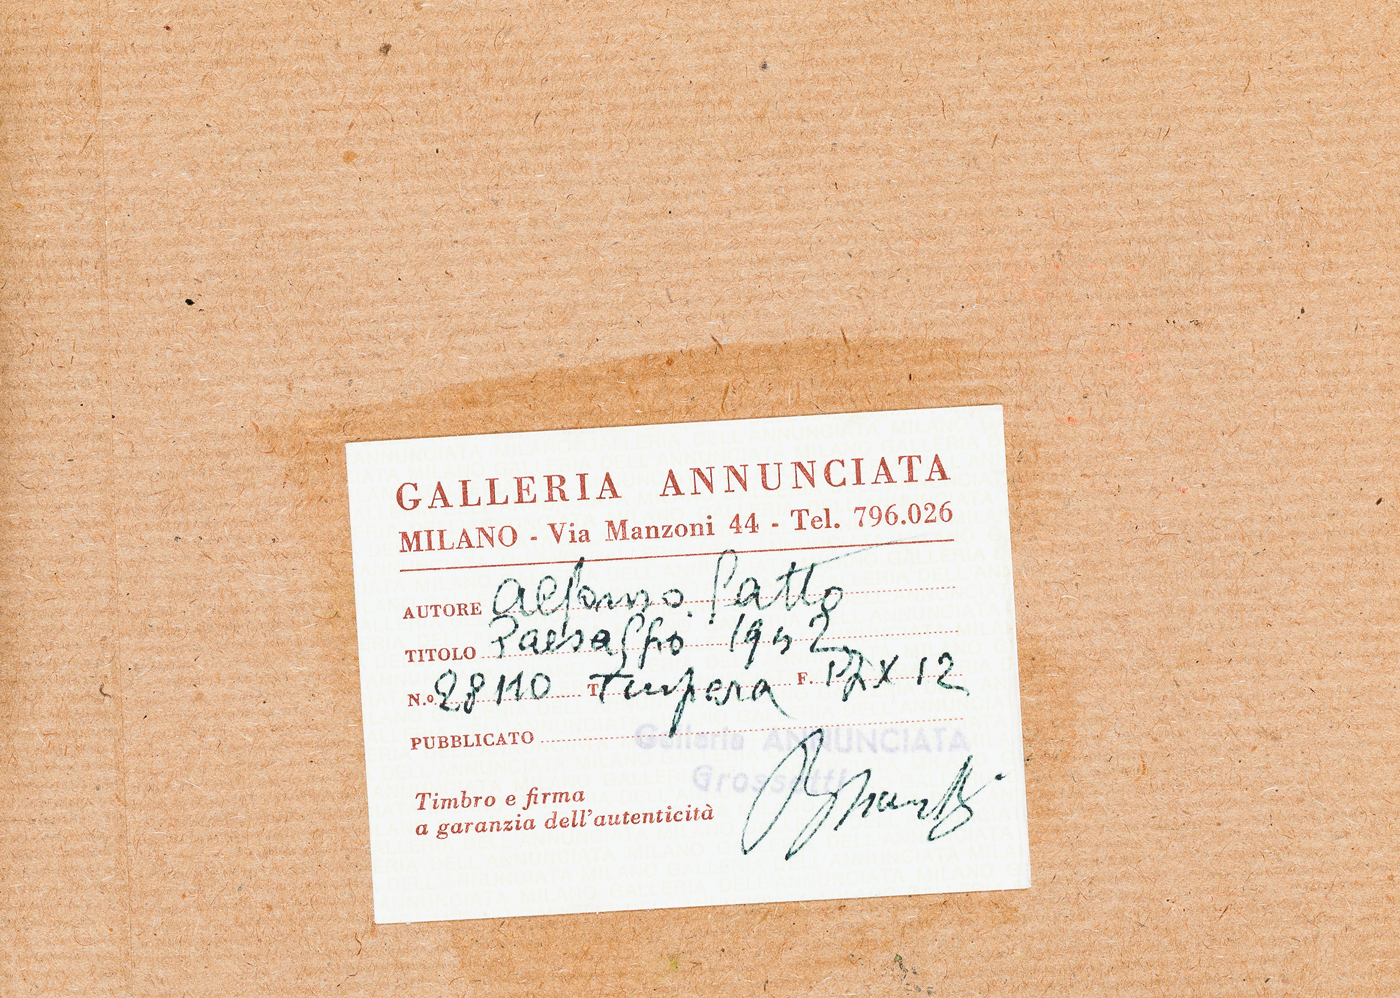 GALLERIA ANNUNCIATA
MILANO - Via Manzoni 44 - Tel. 796.026
AUTORE Alfonso Gatto
TITOLO Paesaggio 1952
N.º 28110 T. Tempera F. X 12
PUBBLICATO
Galleria ANNUNCIATA
Grossetti
Timbro e firma
a garanzia dell'autenticità